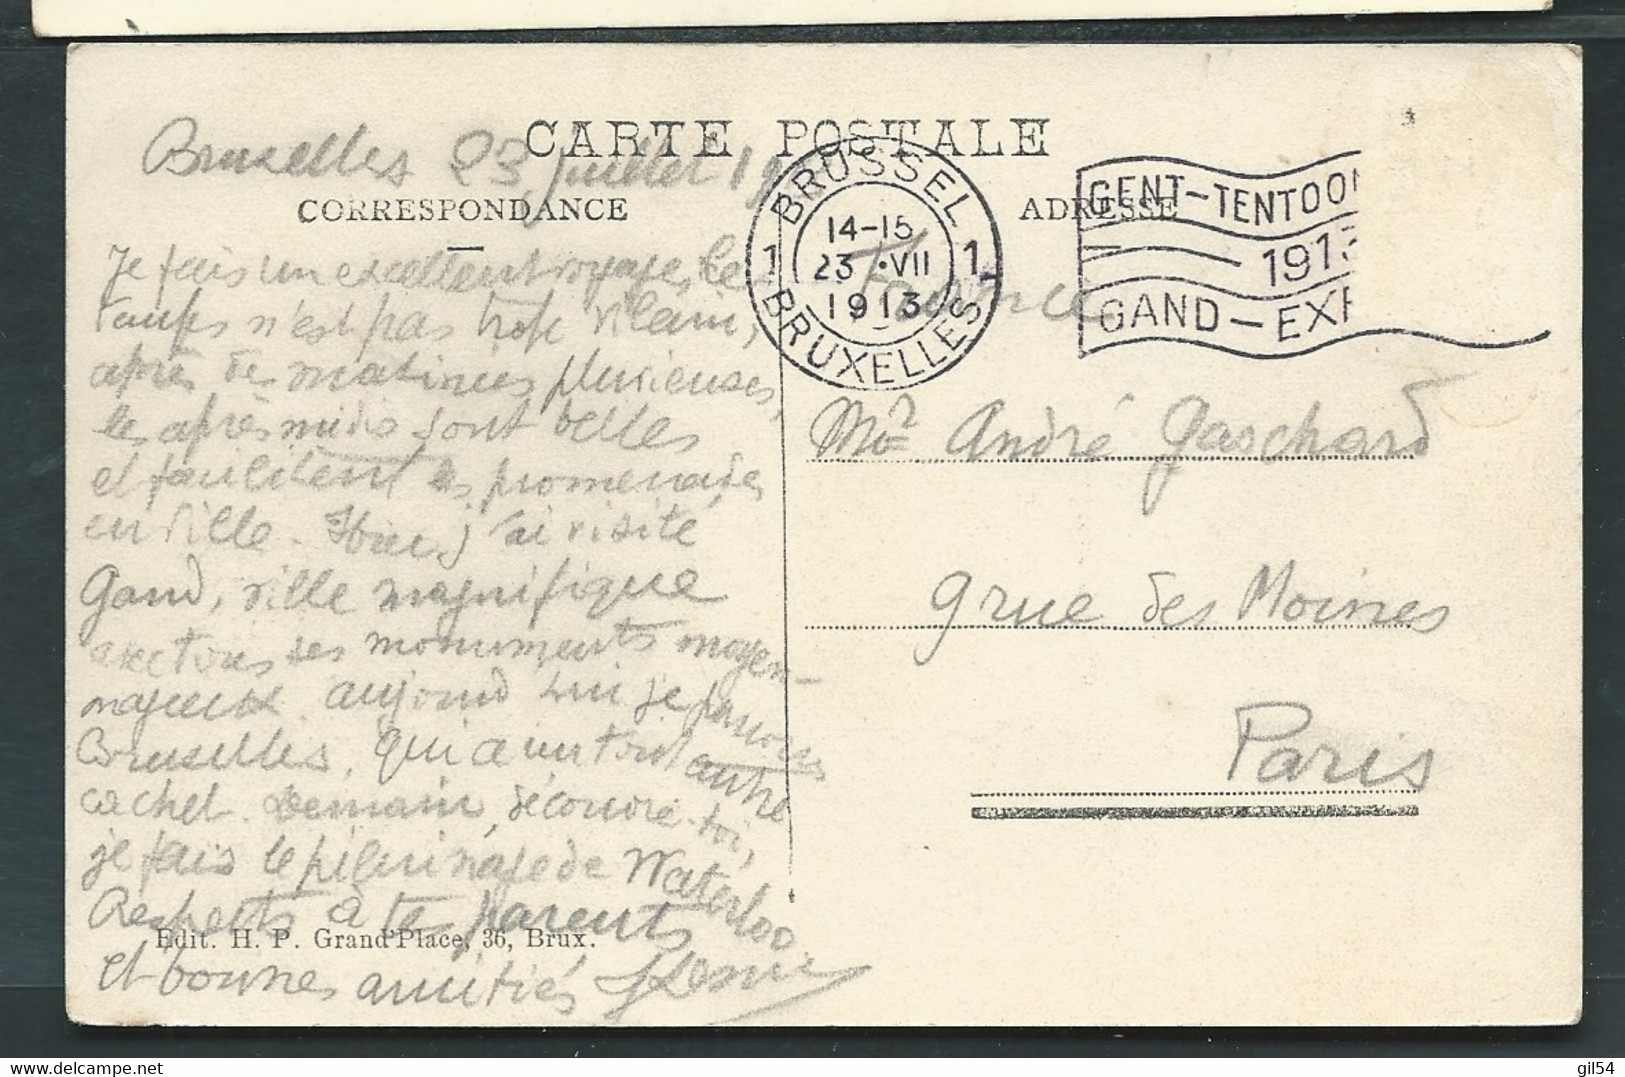 CARTE POSTALE
Bruxelles 23 juillet 19
CORRESPONDANCE
ADRESSE
BRUSSEL
1 1
14-15
23 ·VII
1913
BRUXELLES
GENT-TENTOON
1913
GAND-EXP
Je fais un excellent voyage, le
temps n'est pas trop vilain,
après des matinées pluvieuses,
les après midis sont belles
et facilitent les promenades
en ville. Hier j'ai visité
Gand, ville magnifique
avec tous ses monuments moyen-
nageux. aujourd'hui je parcours
Bruxelles, qui a un tout autre
cachet. Demain, découvre-toi,
je fais le pèlerinage de Waterloo.
Respects à tes parents
et bonnes amitiés
France
Mr André Gaschard
9 rue des Moines
Paris
Edit. H. P. Grand'Place, 36, Brux.
gil54